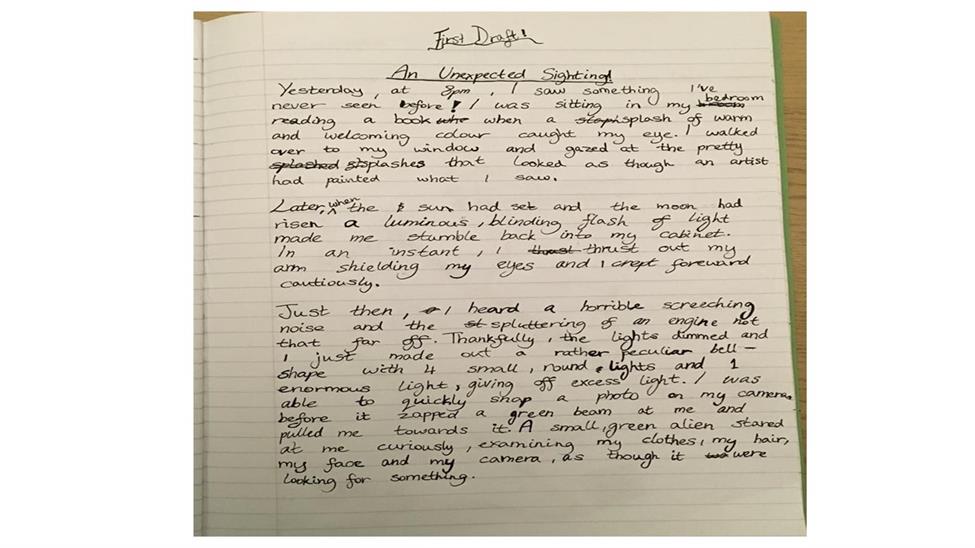 First Draft!
An Unexpected Sighting!
Yesterday, at 8pm, I saw something I've
never seen before! I was sitting in my bedroom
reading a book when a splash of warm
and welcoming colour caught my eye. I walked
over to my window and gazed at the pretty
splashes that looked as though an artist
had painted what I saw.
Later, when the sun had set and the moon had
risen a luminous, blinding flash of light
made me stumble back into my cabinet.
In an instant, I thrust out my
arm shielding my eyes and I crept foreward
cautiously.
Just then, I heard a horrible screeching
noise and the spluttering of an engine not
that far off. Thankfully, the lights dimmed and
I just made out a rather peculiar bell-
shape with 4 small, round lights and 1
enormous light, giving off excess light. I was
able to quickly snap a photo on my camera
before it zapped a green beam at me and
pulled me towards it. A small, green alien stared
at me curiously, examining my clothes, my hair,
my face and my camera, as though it were
looking for something.